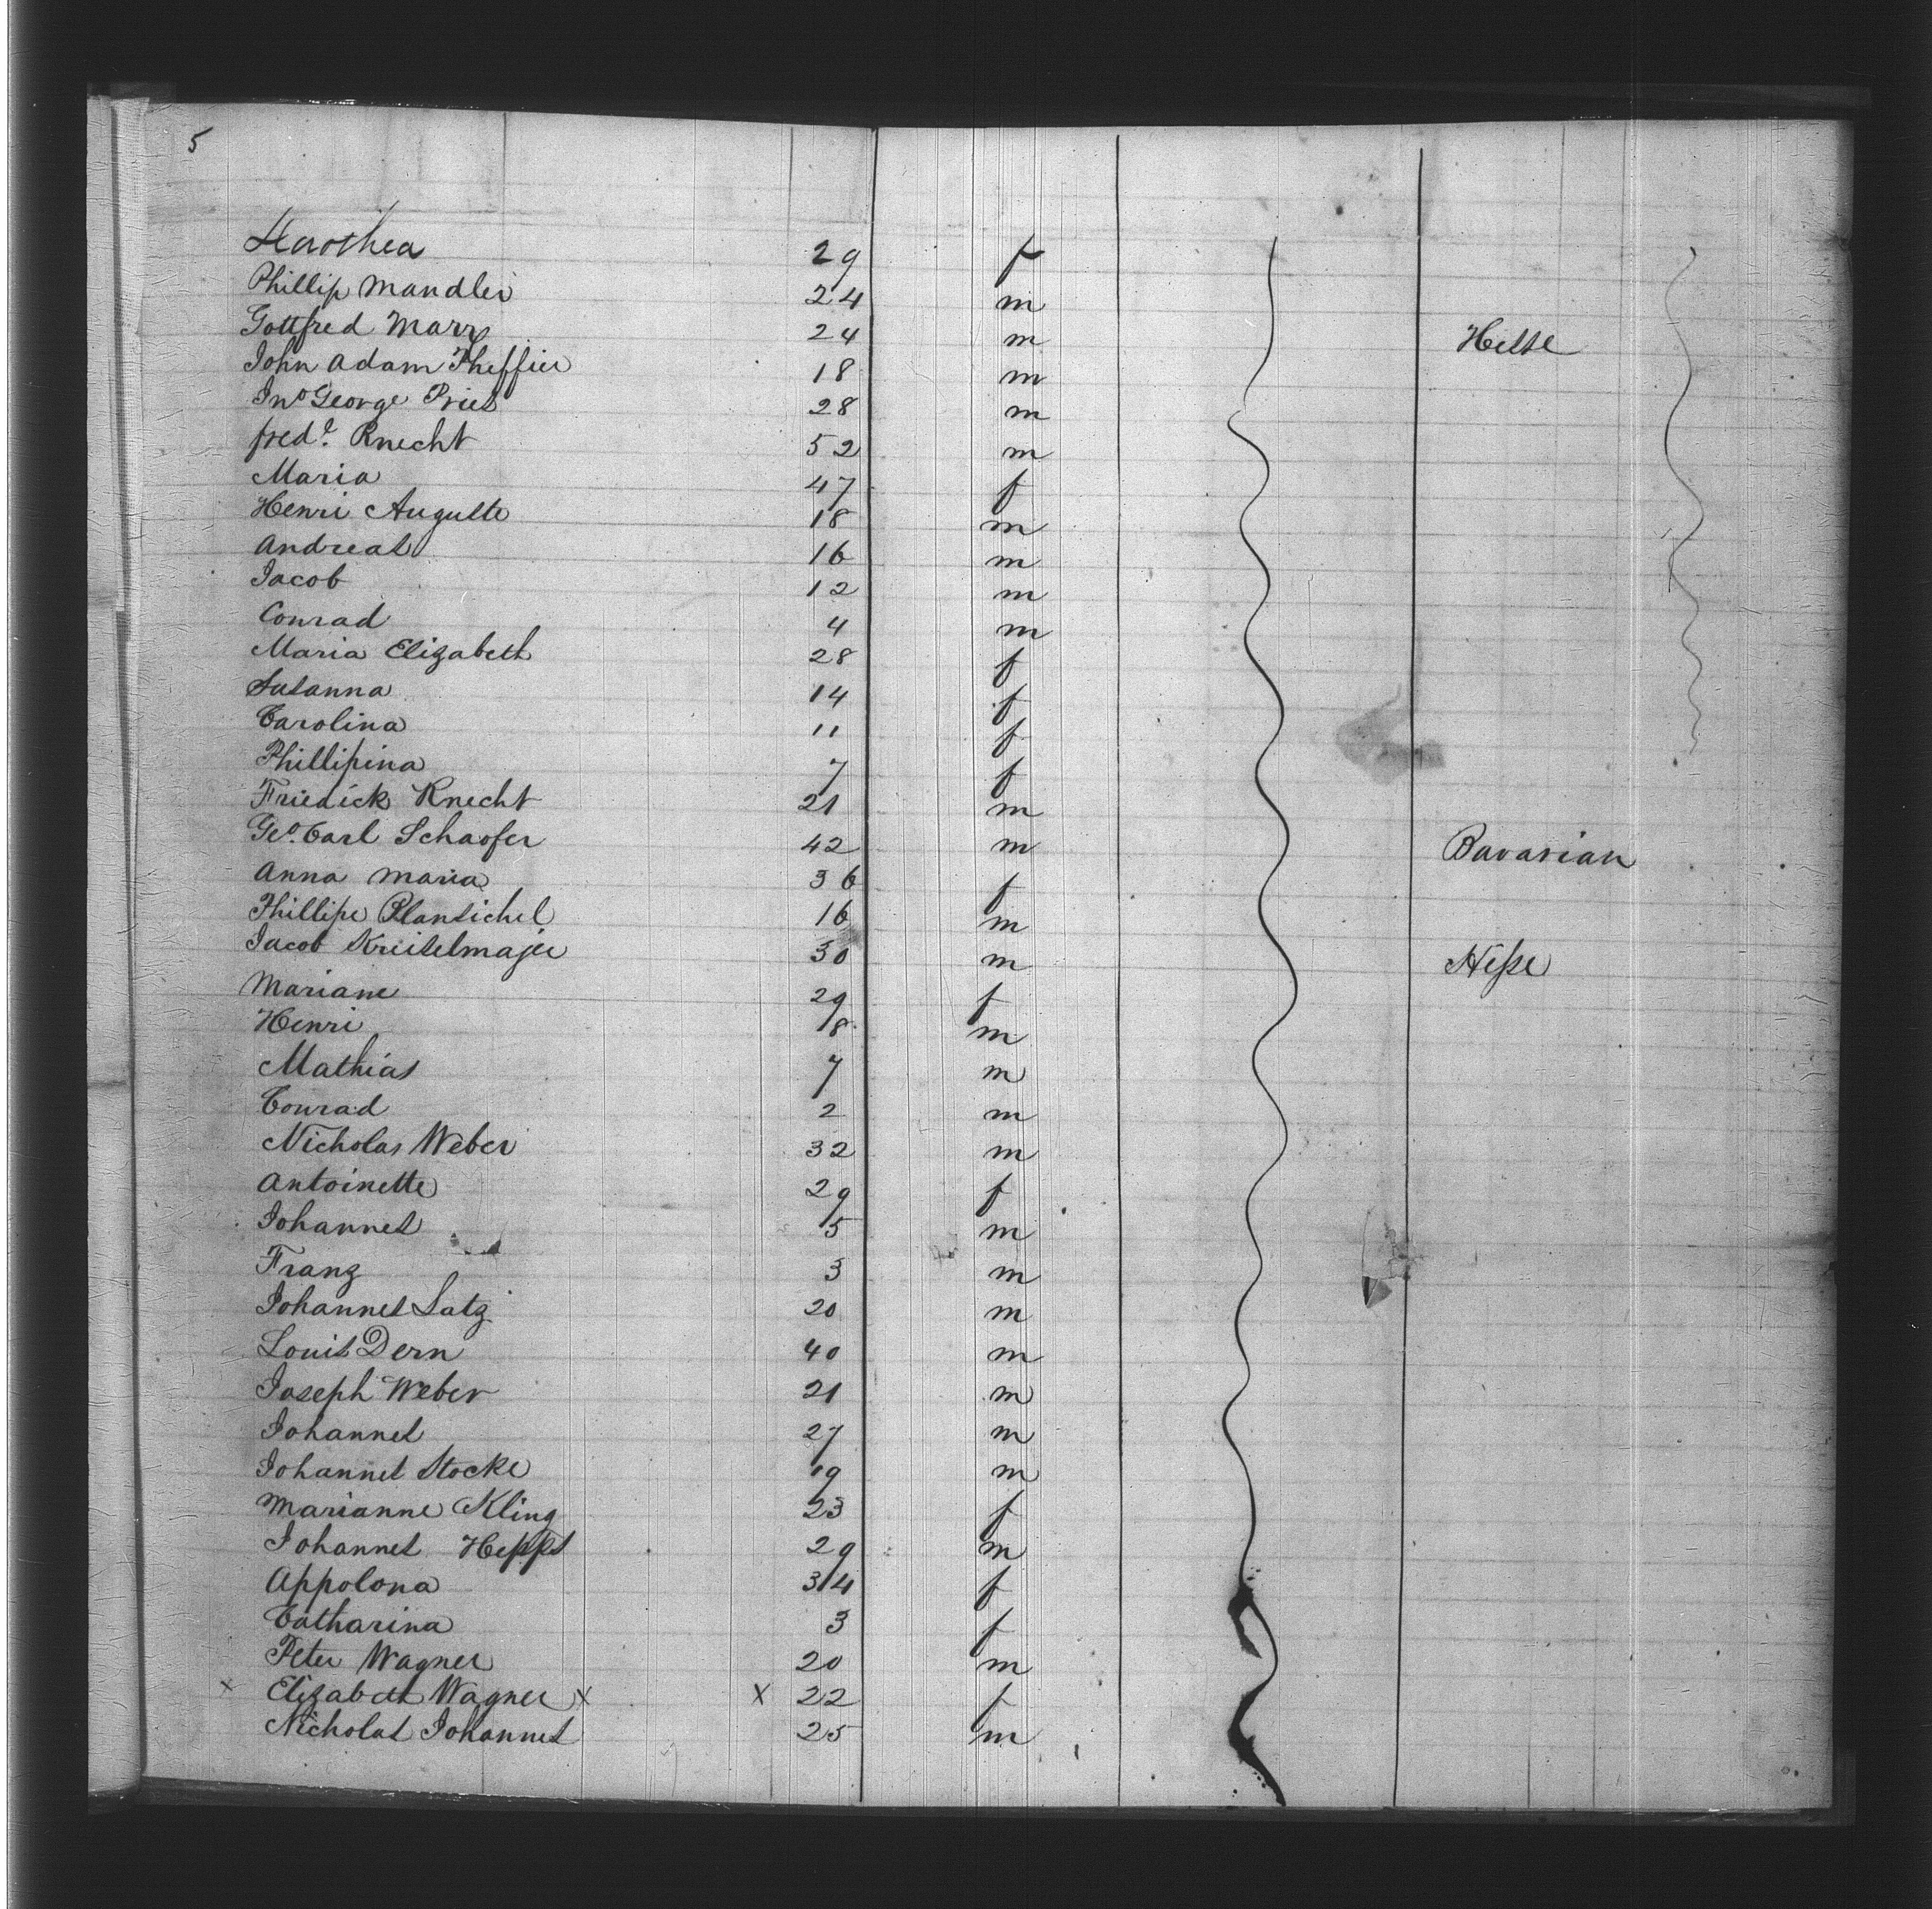 5
Dorothea 29 f
Phillip Mandler 24 m
Gottfred Marx 24 m Hesse
John Adam Pheffier 18 m
Jno George Pries 28 m
fredk. Knecht 52 m
Maria 47 f
Henri Auguste 18 m
Andreas 16 m
Jacob 12 m
Conrad 4 m
Maria Elizabeth 28 f
Susanna 14 f
Carolina 11 f
Phillipina 7 f
Friedick Knecht 21 m
Geo. Carl Schaofer 42 m Bavarian
Anna Maria 36 f
Phillipe 16 m
Jacob Kreiselmajer 30 m Hesse
Mariane 29 f
Henri 8 m
Mathias 7 m
Conrad 2 m
Nicholas Weber 32 m
Antoinette 29 f
Johannes 5 m
Franz 3 m
Johannes Satz 20 m
Louis Dern 40 m
Joseph Weber 21 m
Johannes 27 m
Johannes Stocke 19 m
Marianne Kling 23 f
Johannes Hepps 29 m
Appolona 34 f
Catharina 3 f
Peter Wagner 20 m
x Elizabeth Wagner x x 22 f
Nicholas Johannes 25 m